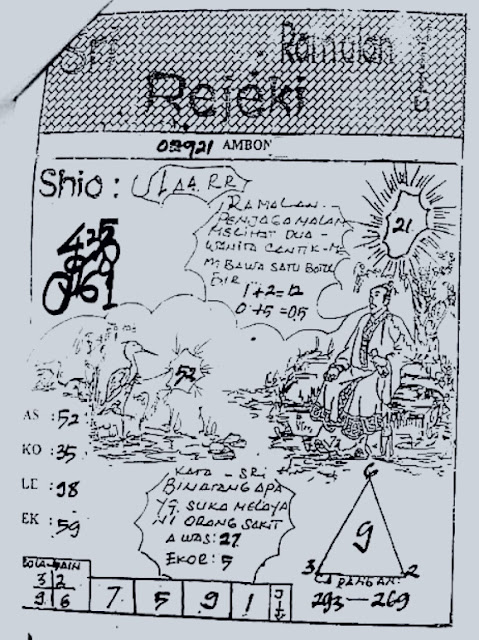 Sri Ramalan
Rejeki
AMBON
Shio : ULAR.
RAMALAN.
PENJAGA MALAM
MELIHAT DUA -
WANITA CANTIK-M
MBAWA SATU BOTOL
BIR
1+2=12
0+5=05
21
061
52
AS : 52
KO : 35
LE : 98
EK : 59
KATA - SRI
BINATANG APA
YG. SUKA MELAYA
NI ORANG SAKIT
AWAS: 27
EKOR: 5
6
9
3 2
BOLA MAIN
3 2
9 6
7 5 9 1
293 — 269